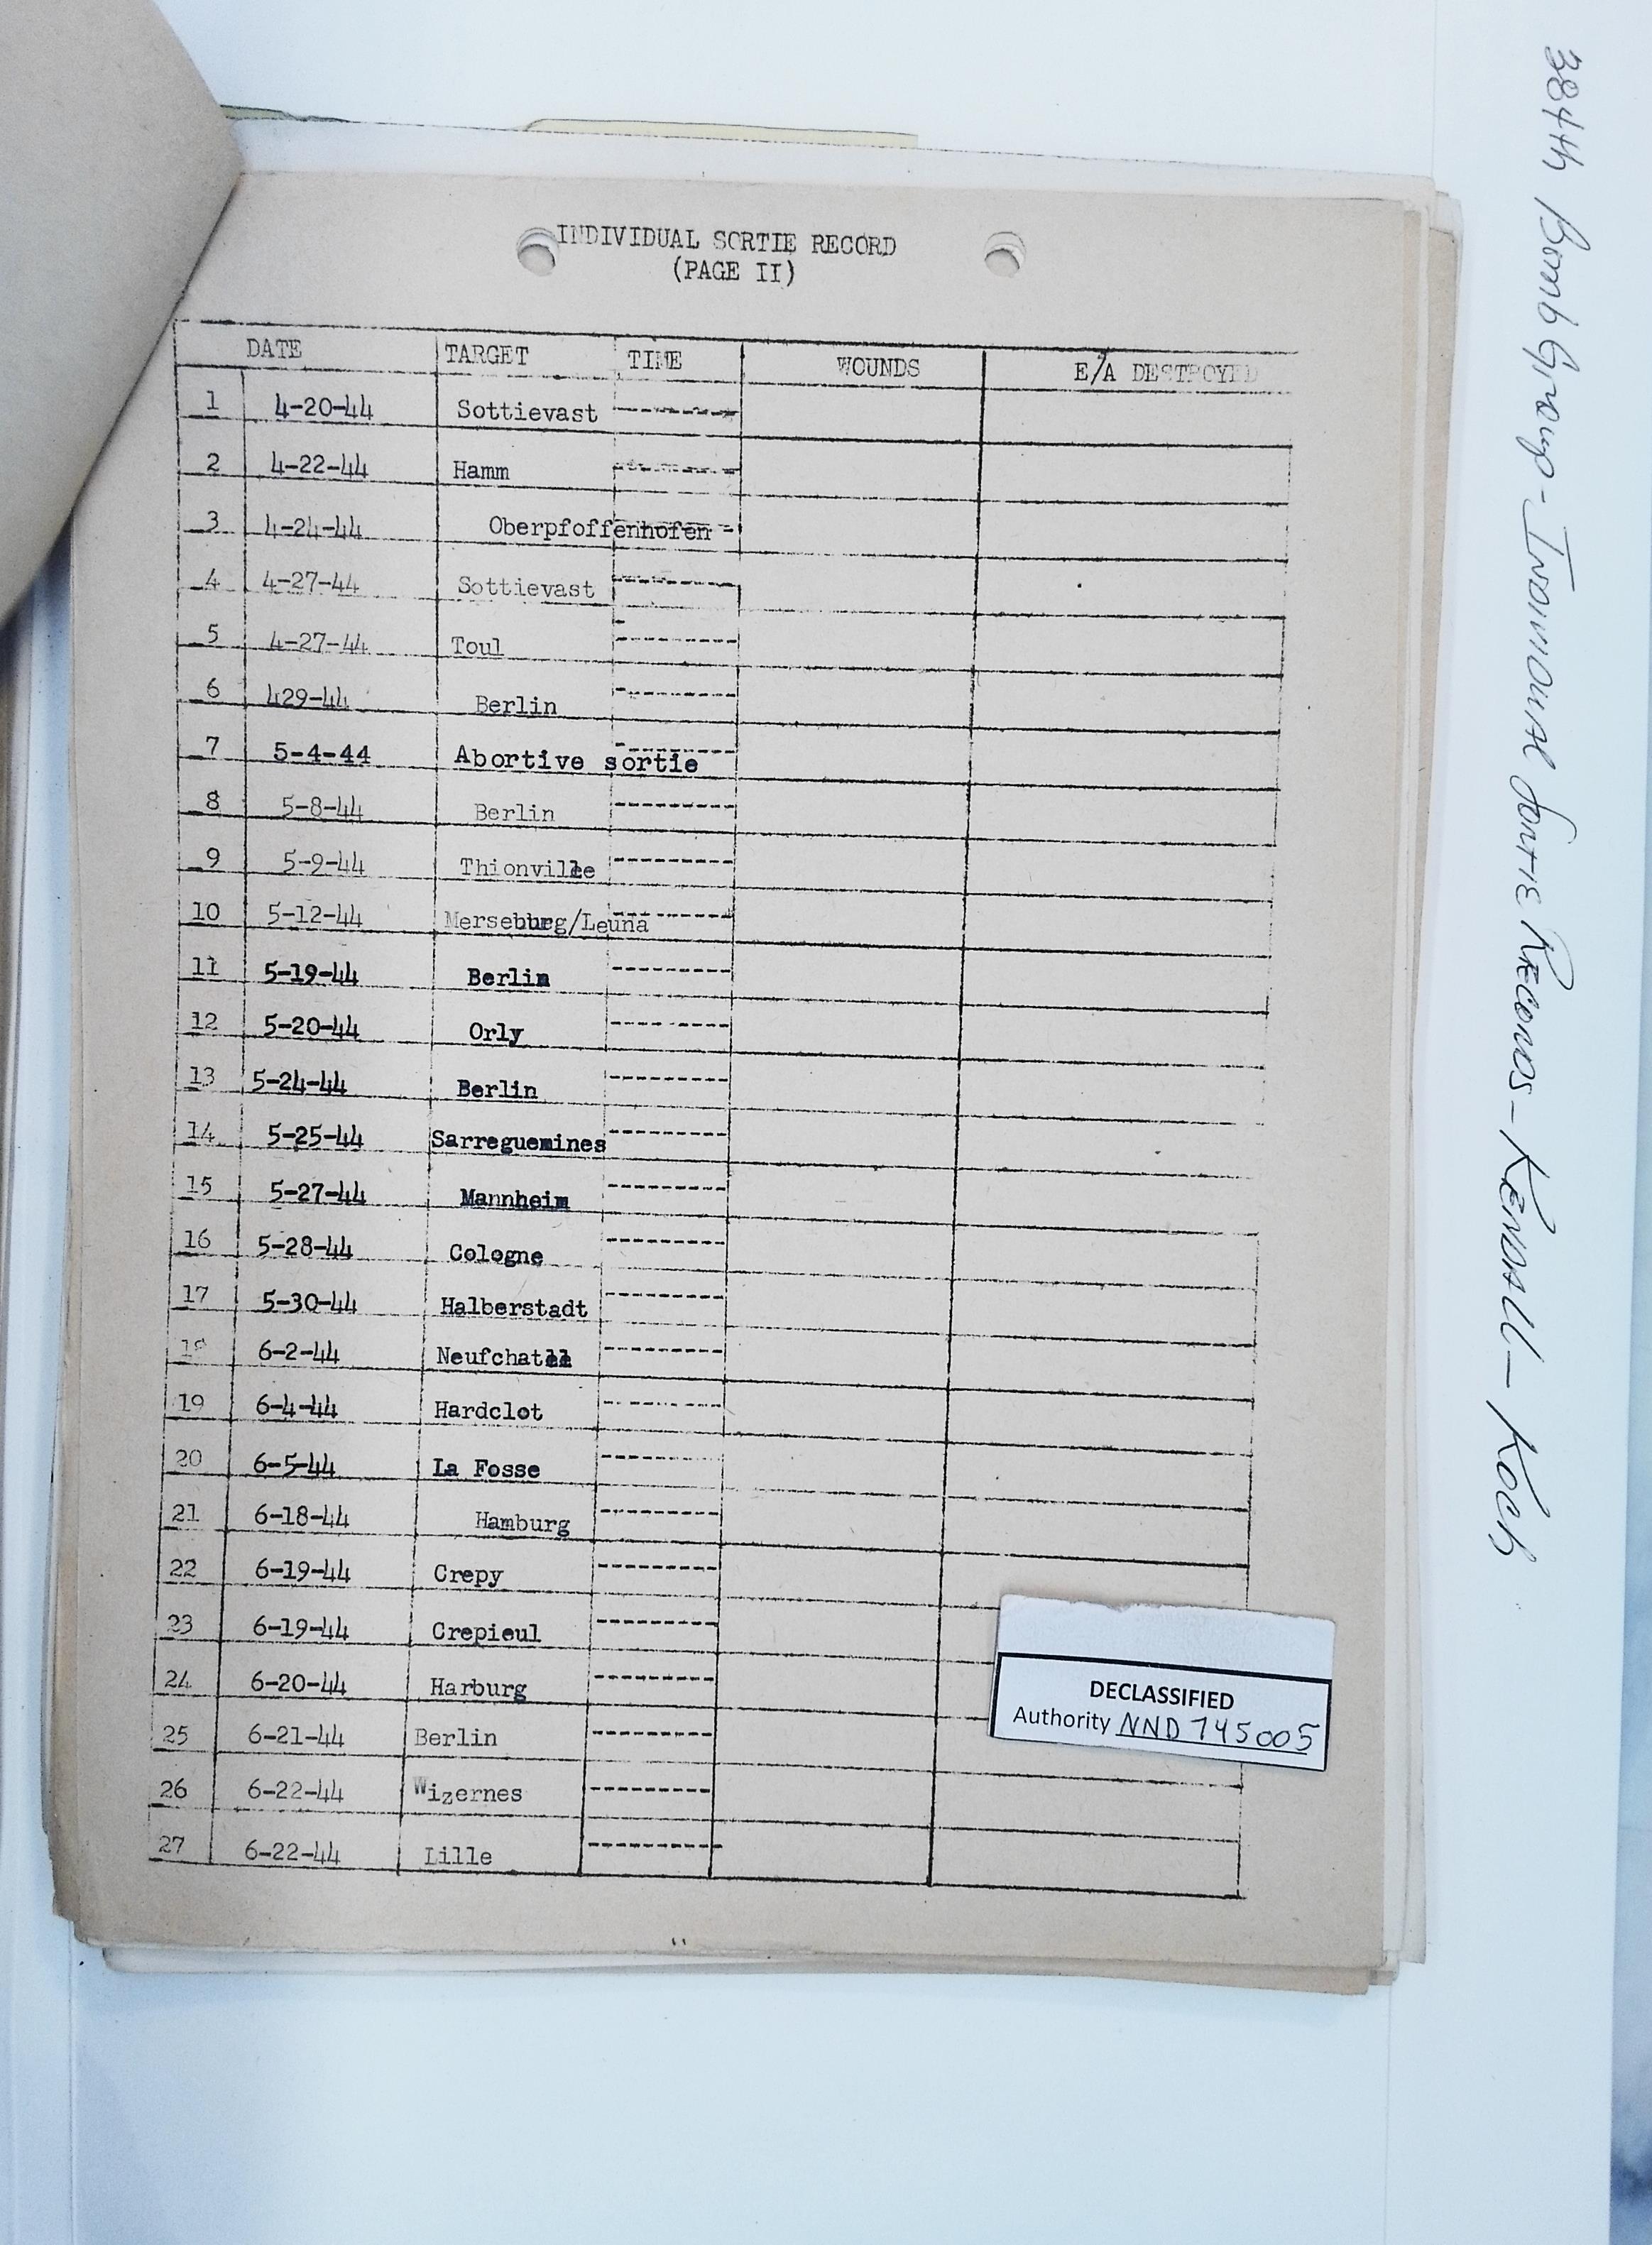 INDIVIDUAL SORTIE RECORD
(PAGE II)
DATE TARGET TIME WOUNDS E/A DESTROYED
1 4-20-44 Sottievast ----------
2 4-22-44 Hamm ----------
3 4-24-44 Oberpfoffenhofen -
4 4-27-44 Sottievast ----------
5 4-27-44 Toul ----------
6 429-44 Berlin ----------
7 5-4-44 Abortive sortie ----------
8 5-8-44 Berlin ----------
9 5-9-44 Thionville ----------
10 5-12-44 Merseburg/Leuna ----------
11 5-19-44 Berlin ----------
12 5-20-44 Orly ----------
13 5-24-44 Berlin ----------
14 5-25-44 Sarreguemines ----------
15 5-27-44 Mannheim ----------
16 5-28-44 Cologne ----------
17 5-30-44 Halberstadt ----------
18 6-2-44 ----------
19 6-4-44 Hardclot ----------
20 6-5-44 La Fosse ----------
21 6-18-44 Hamburg ----------
22 6-19-44 Crepy ----------
23 6-19-44 Crepieul ----------
24 6-20-44 Harburg ----------
25 6-21-44 Berlin ----------
26 6-22-44 Wizernes ----------
27 6-22-44 Lille ----------
DECLASSIFIED
Authority NND 745005
384th Bomb Group - Individual Sortie Records - Kendall - Koch